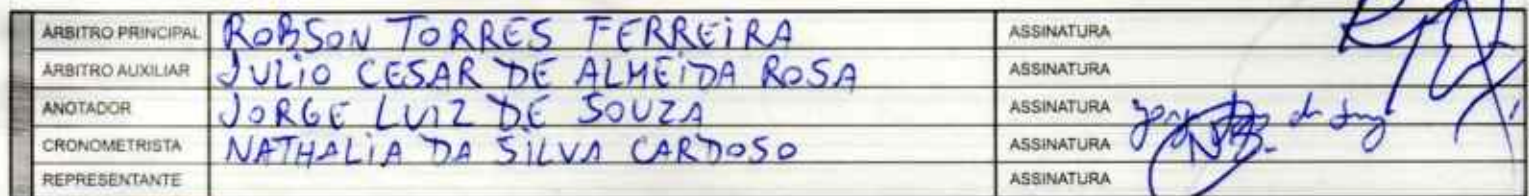 ÁRBITRO PRINCIPAL ROBSON TORRES FERREIRA ASSINATURA
ÁRBITRO AUXILIAR JULIO CESAR DE ALMEIDA ROSA ASSINATURA
ANOTADOR JORGE LUIZ DE SOUZA ASSINATURA
CRONOMETRISTA NATHALIA DA SILVA CARDOSO ASSINATURA
REPRESENTANTE ASSINATURA